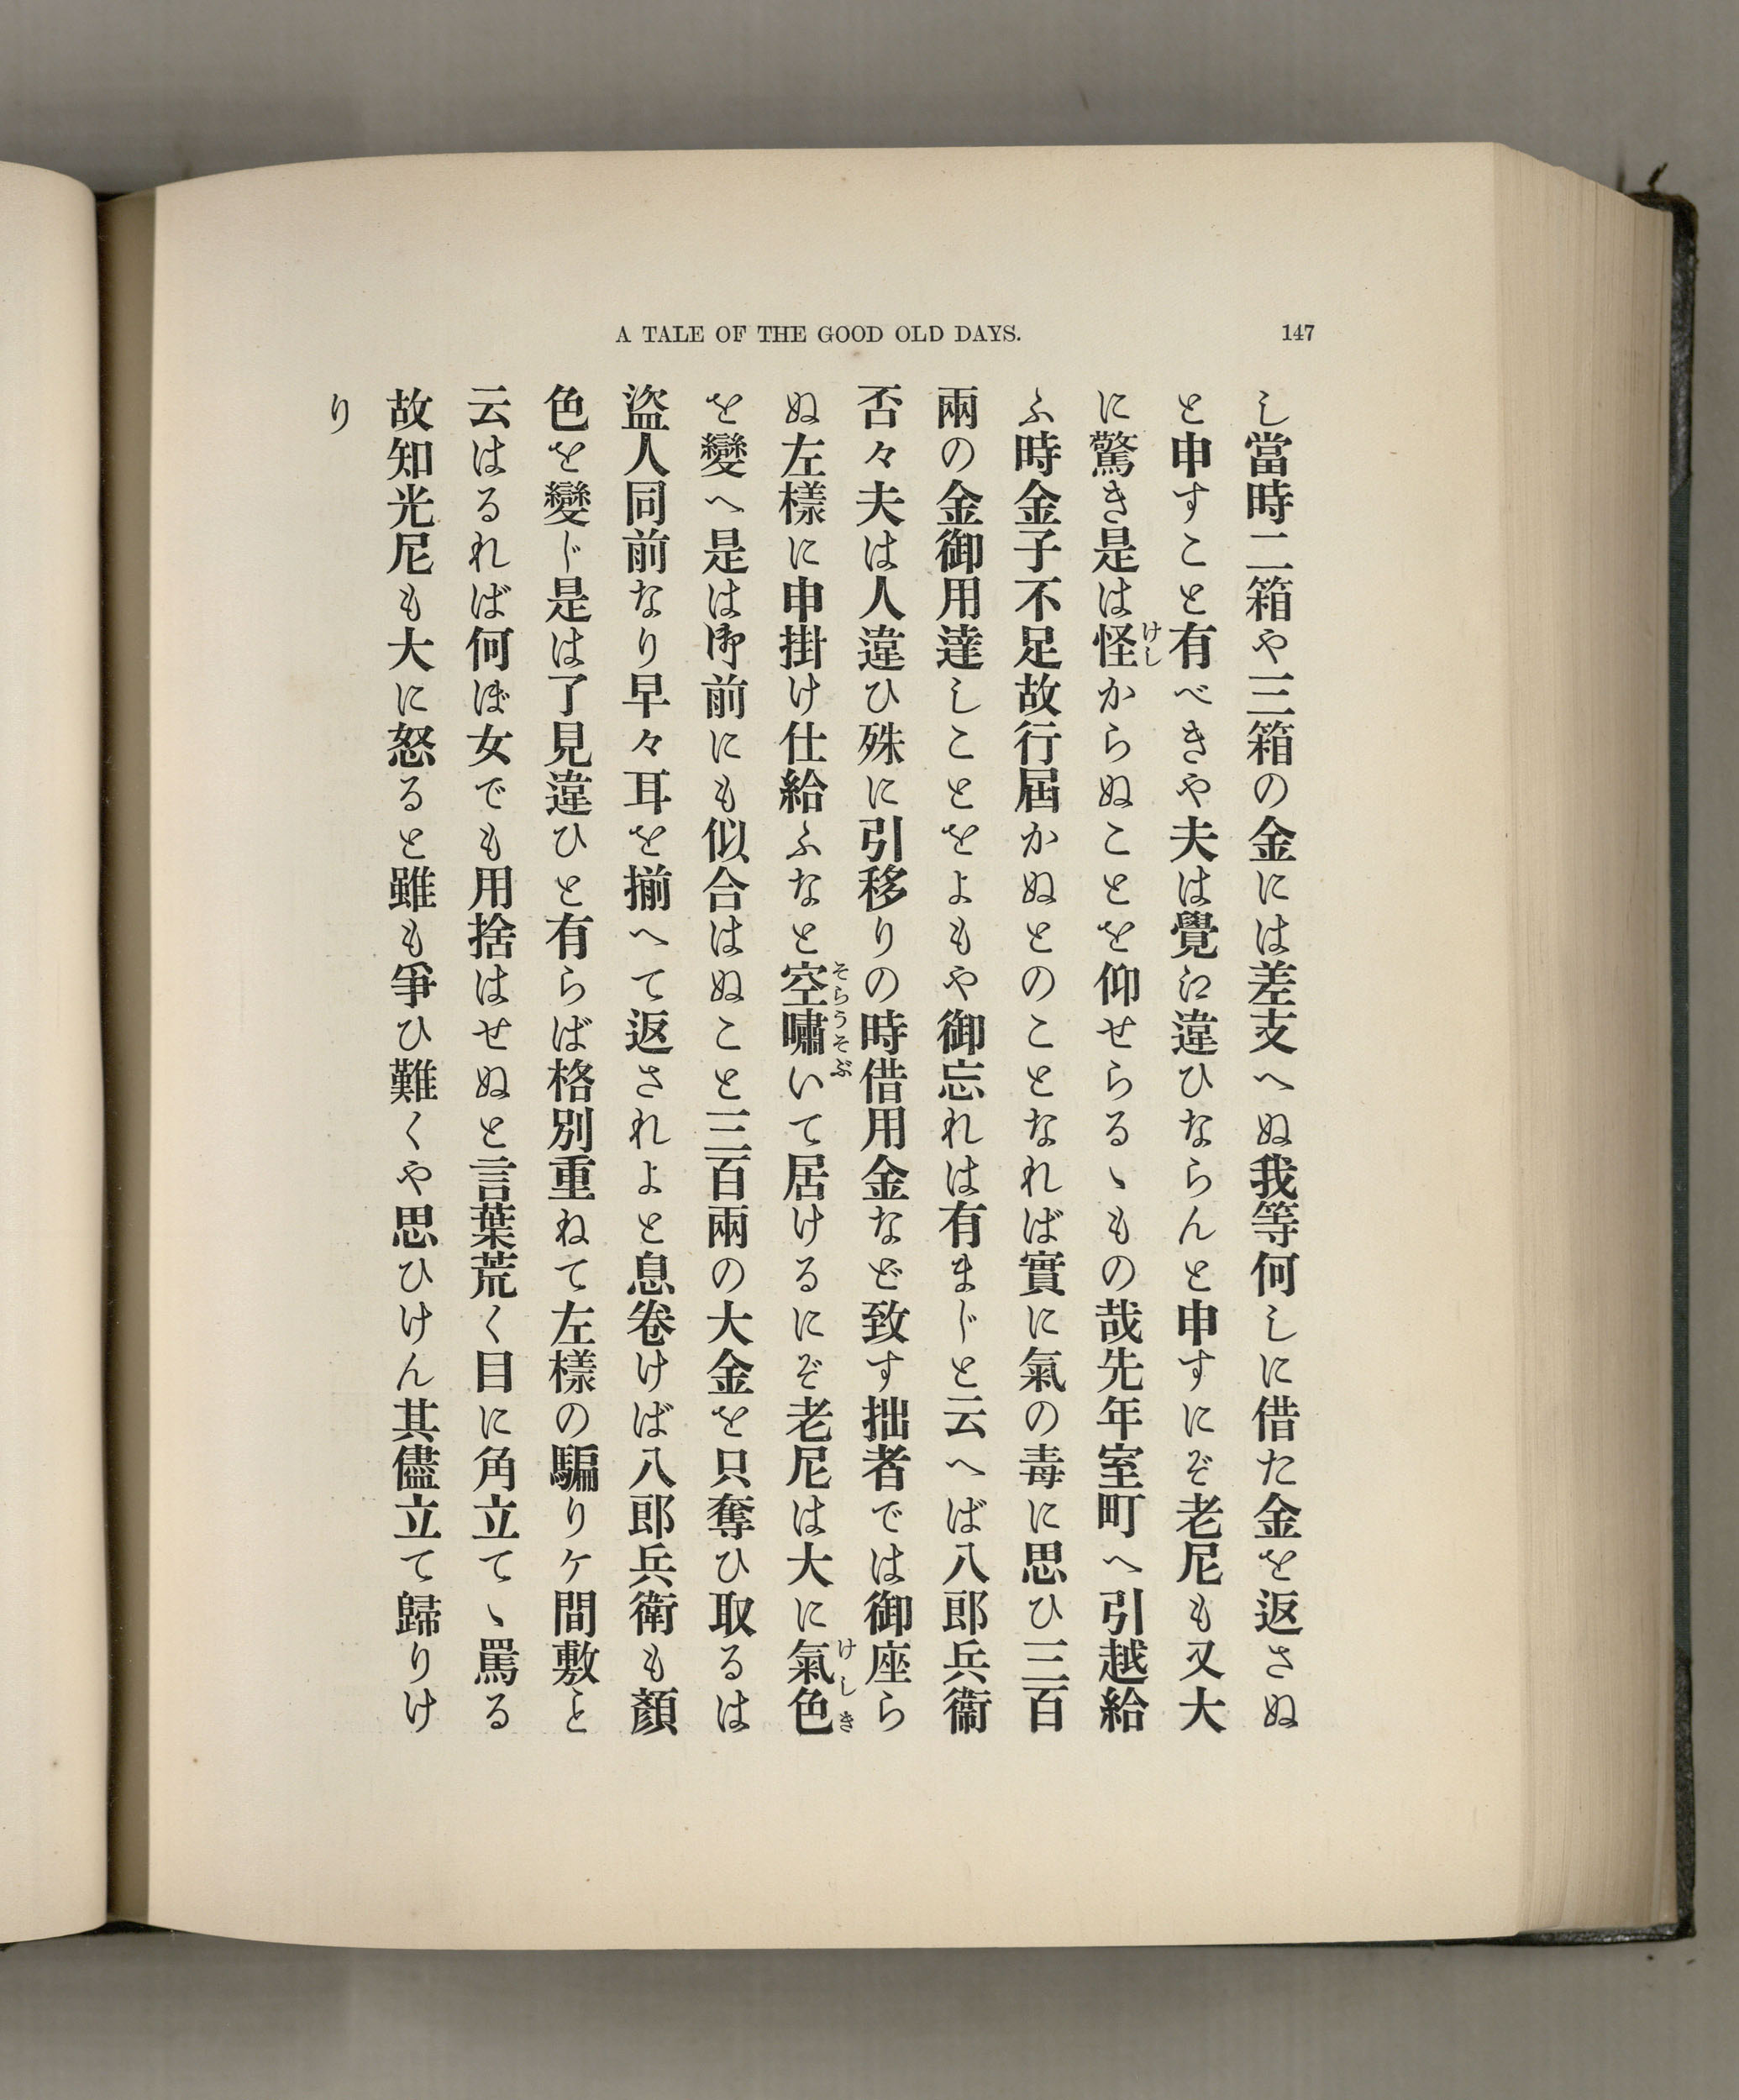 A TALE OF THE GOOD OLD DAYS. 147
し當時二箱や三箱の金には差支へぬ我等何しに借た金を返さぬ
と申すこと有べきや夫は覺江違ひならんと申すにぞ老尼も又大
に驚き是は怪けしからぬことを仰せらるゝもの哉先年室町へ引越給
ふ時金子不足故行屆かぬとのことなれば實に氣の毒に思ひ三百
兩の金御用達しことをよもや御忘れは有まじと云へば八郎兵衞
否々夫は人違ひ殊に引移りの時借用金など致す拙者では御座ら
ぬ左樣に申掛け仕給ふなと空嘯そらうそぶいて居けるにぞ老尼は大に氣色けしき
を變へ是は御前にも似合はぬこと三百兩の大金を只奪ひ取るは
盜人同前なり早々耳を揃へて返されよと息卷けば八郎兵衛も顏
色を變じ是は了見違ひと有らば格別重ねて左樣の騙りケ間敷と
云はるれば何ぼ女でも用捨はせぬと言葉荒く目に角立てゝ罵る
故知光尼も大に怒ると雖も爭ひ難くや思ひけん其儘立て歸りけ
り